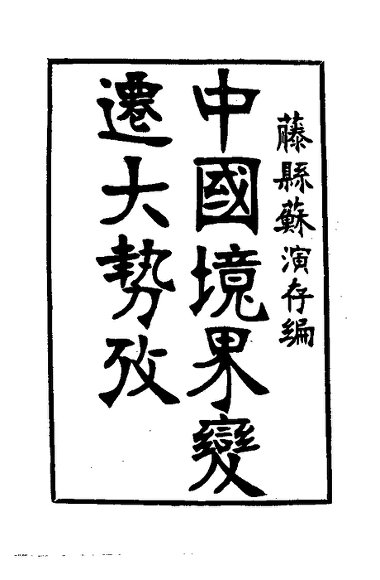 藤縣蘇演存编
中國境界變
遷大勢攷